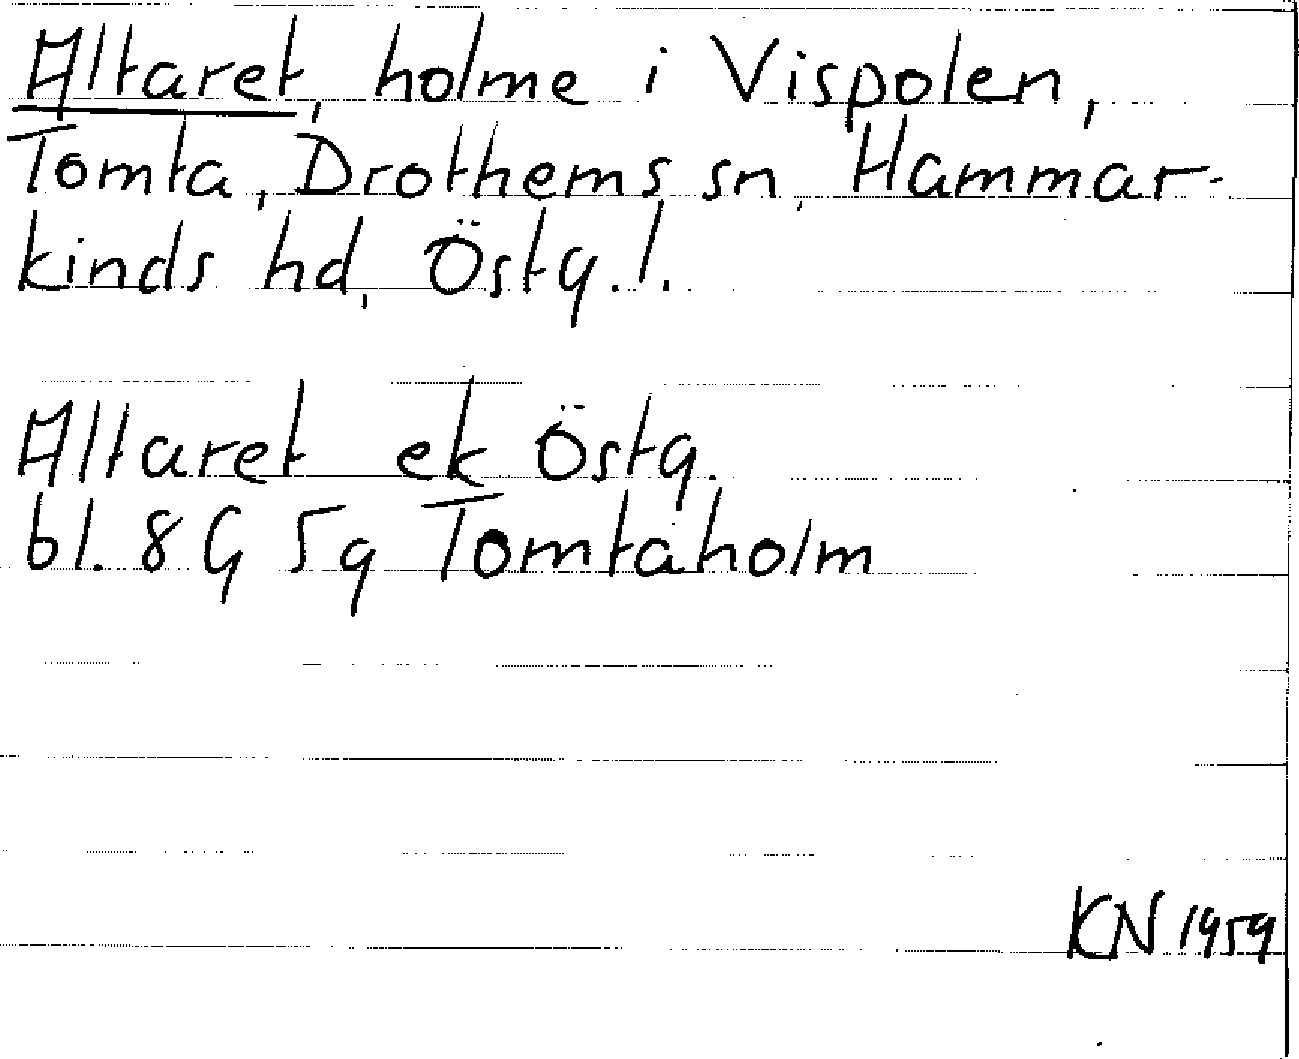 Altaret, holme i Vispolen,
Tomta, Drothems sn, Hammar-
kinds hd, Östg.l.
Altaret ek Östg.
bl. 8G 5g Tomtaholm
KN 1959